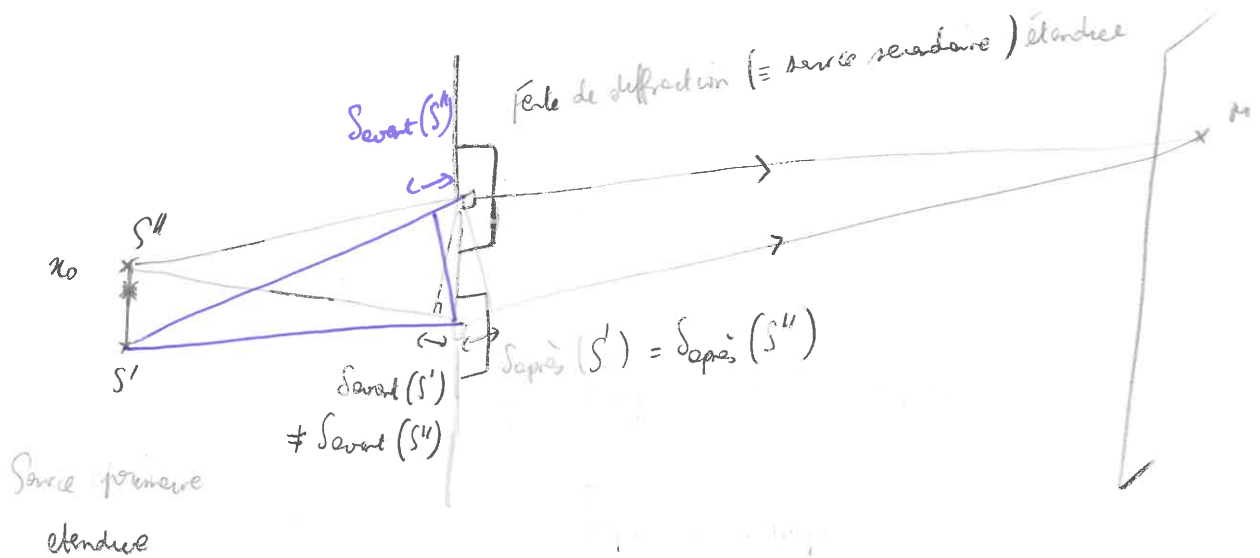 Fente de diffraction (≡ source secondaire) étendue
δavant(S'')
M
S''
x0
S'
δaprès(S') = δaprès(S'')
δavant(S')
≠ δavant(S'')
Source primaire
étendue